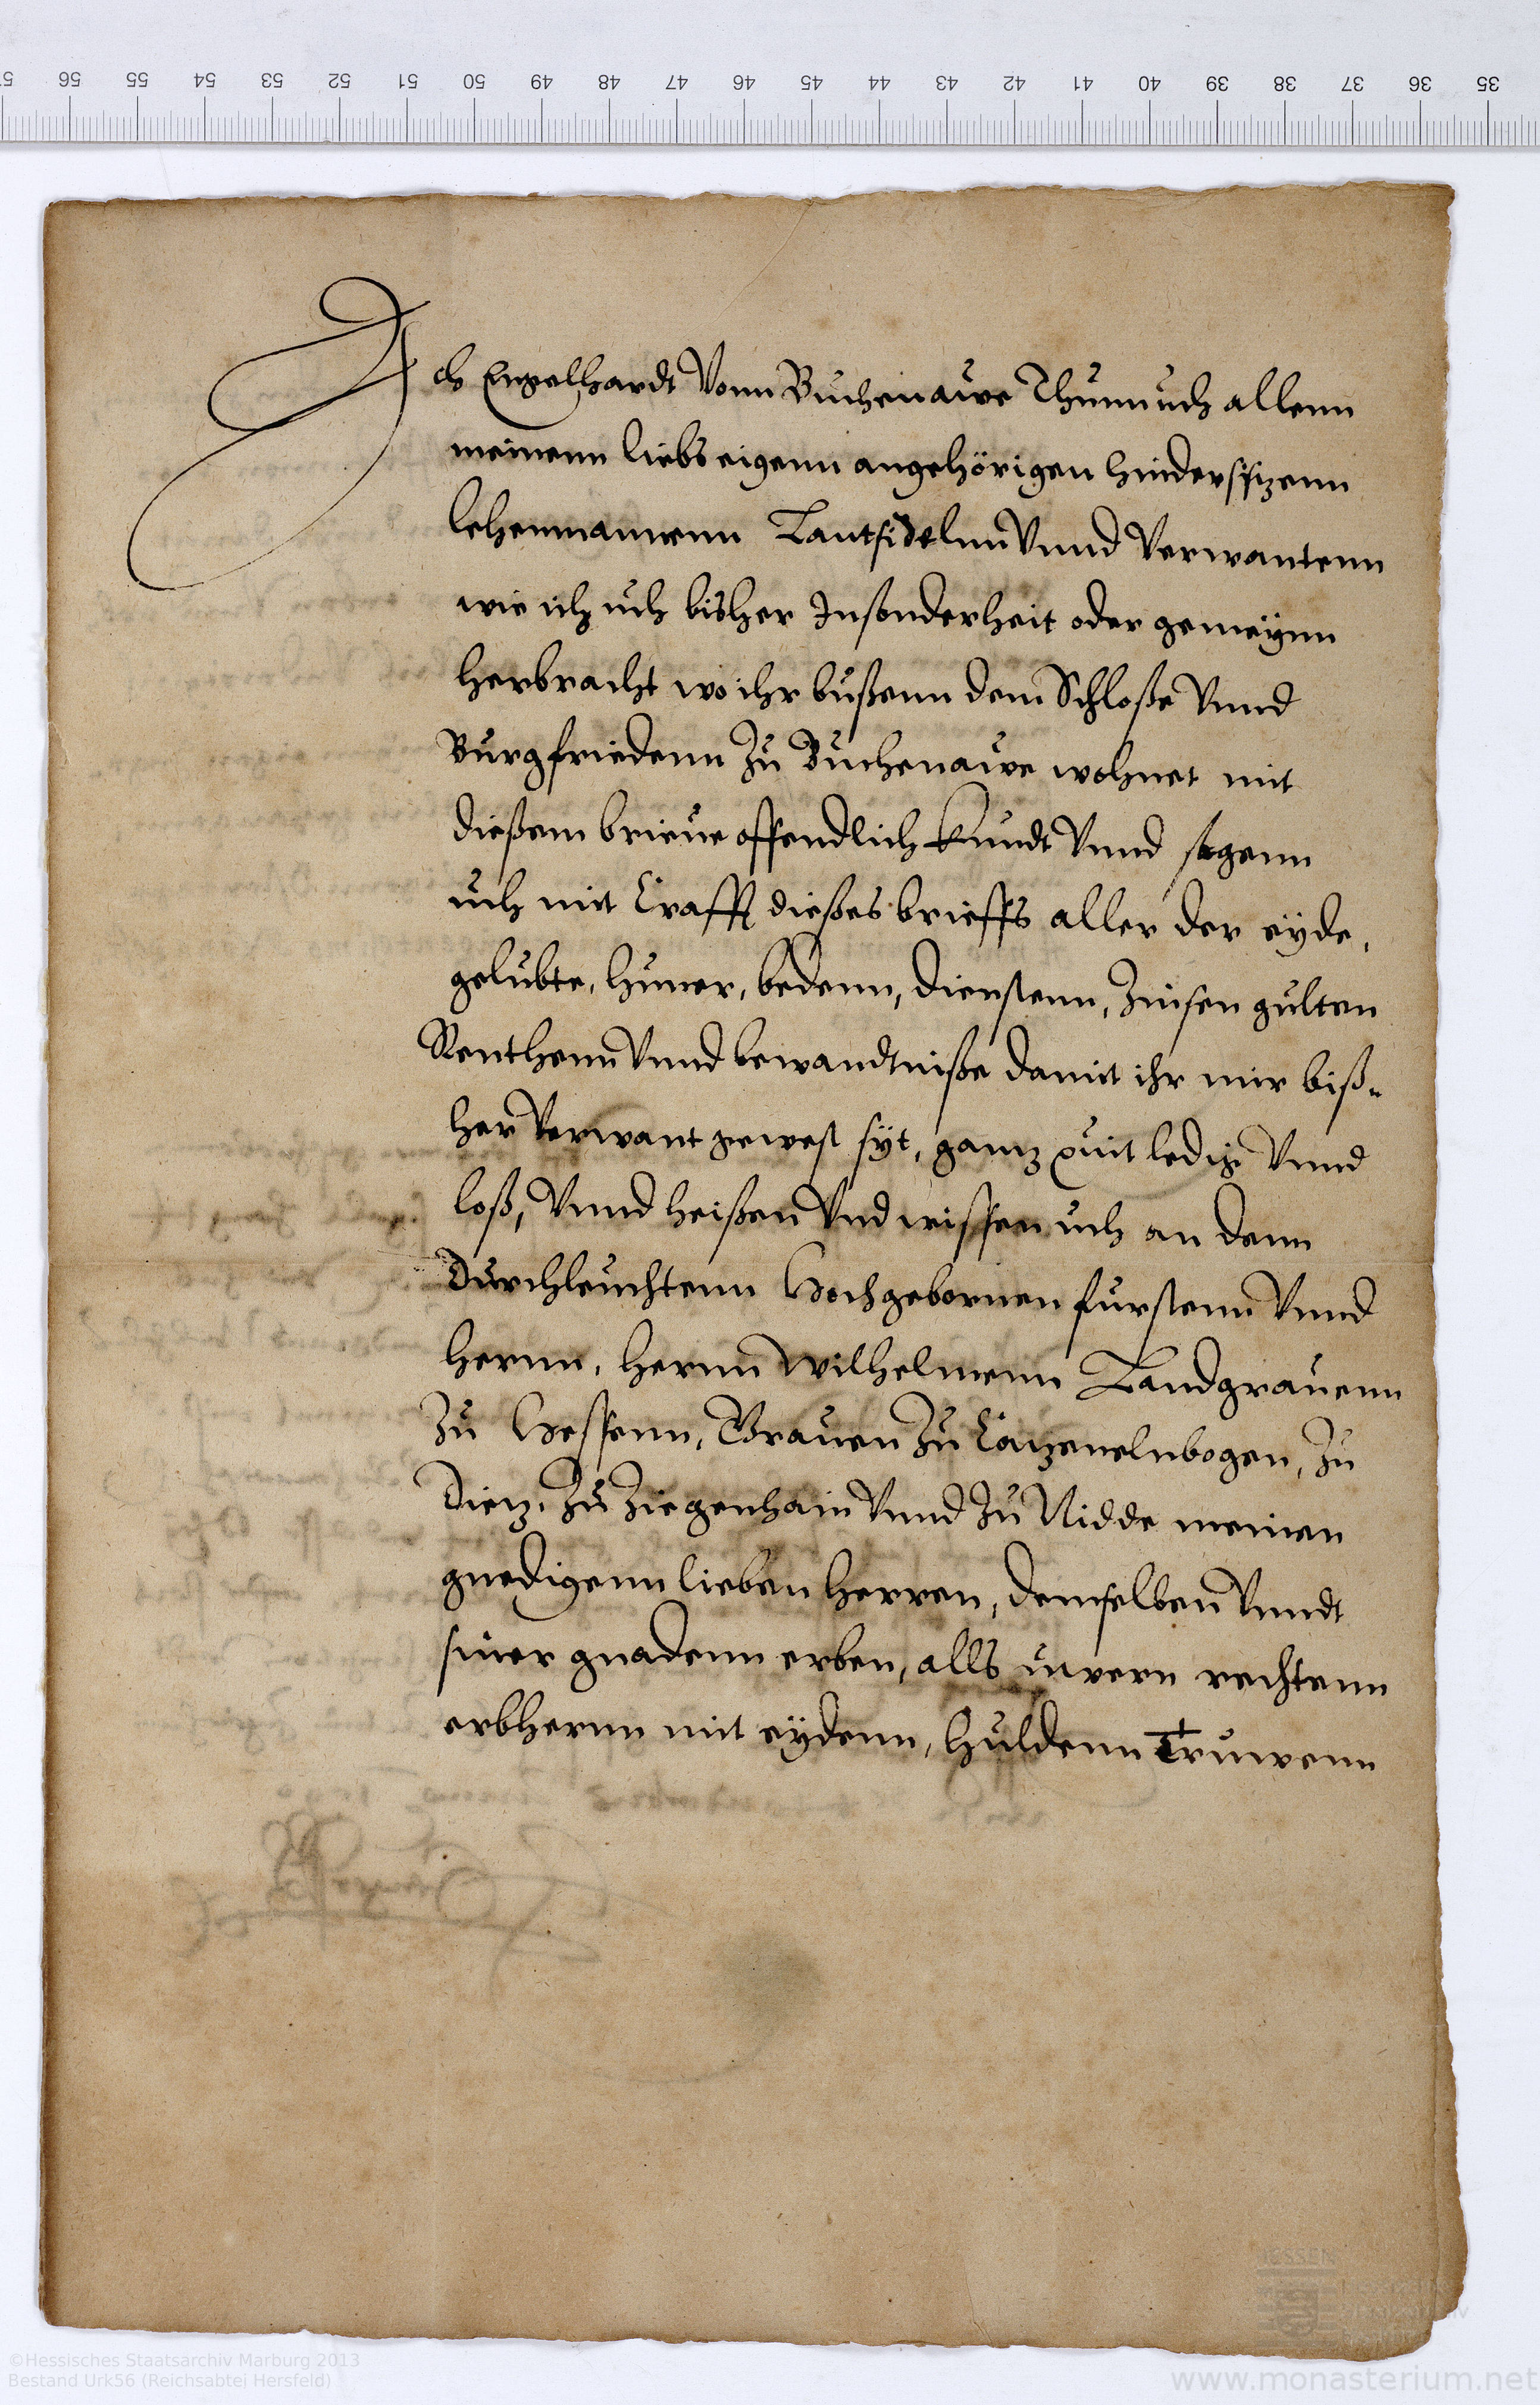 57 56 55 54 53 52 51 50 49 48 47 46 45 44 43 42 41 40 39 38 37 36 35
Ich Engelhardt Vonn Buchenauwe Thunn uch allenn
meinenn liebs eigenn angehörigen hindersitzenn
lehenmannenn Lantsidelnn Vnnd Verwantenn
wie ich uch bisher Insonderheit oder gemeynn
herbracht wo ihr bußenn dem Schloße Vnnd
Burgfriedenn zu Buchenauwe wohnet mit
dießem brieue offendlich kundt Vnnd sagenn
uch mit Crafft dießes brieffs aller der eyde,
gelubte, huner, bedenn, dienstenn, Zinsen gulten
Renthenn Vnnd bewandtniße damit ihr mir biß-
her Verwant gewest syt, gantz quit ledig Vnnd
loß, Vnnd heißen Vnd wissen uch an denn
Durchleuchtenn Hochgebornen furstenn Vnnd
hernn, hernn Wilhelmenn Landgrauenn
Zu Hessenn, Grauen Zu Catzenelnbogen, Zu
Dietz, Zu Ziegenhain Vnnd Zu Nidde meinen
gnedigenn lieben Herren, demselben Vnndt
siner gnadenn erben, alls uwern rechtenn
erbhernn mit eydenn, huldenn Truwenn
©Hessisches Staatsarchiv Marburg 2013
Bestand Urk56 (Reichsabtei Hersfeld)
HESSEN
www.monasterium.net